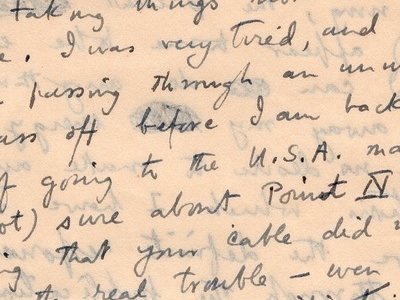 taking things
e. I was very tired, and
passing through an
ass off before I am back
of going to the U.S.A.
ot) sure about Point IV
ng that your cable did
real trouble – even